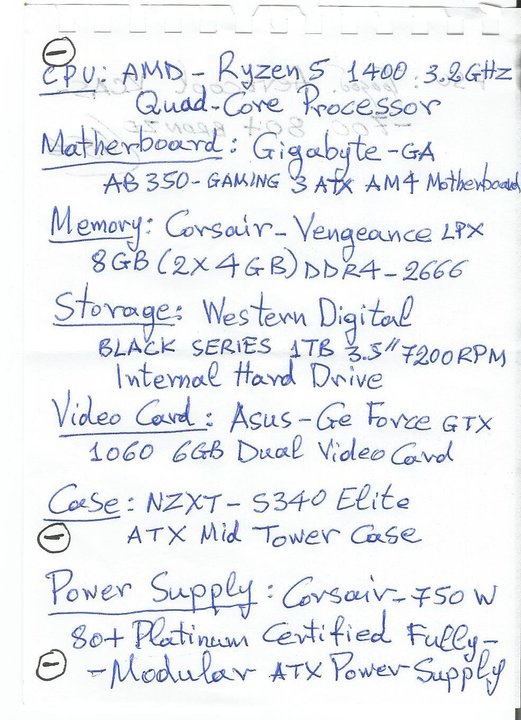 CPU: AMD - Ryzen 5 1400 3.2GHz
Quad-Core Processor
Motherboard: Gigabyte-GA
AB350-GAMING 3 ATX AM4 Motherboard
Memory: Corsair-Vengeance LPX
8GB (2X4GB) DDR4-2666
Storage: Western Digital
BLACK SERIES 1TB 3.5" 7200RPM
Internal Hard Drive
Video Card: Asus-Ge Force GTX
1060 6GB Dual Video Card
Case: NZXT-S340 Elite
ATX Mid Tower Case
Power Supply: Corsair-750 W
80+ Platinum Certified Fully-
-Modular ATX Power Supply